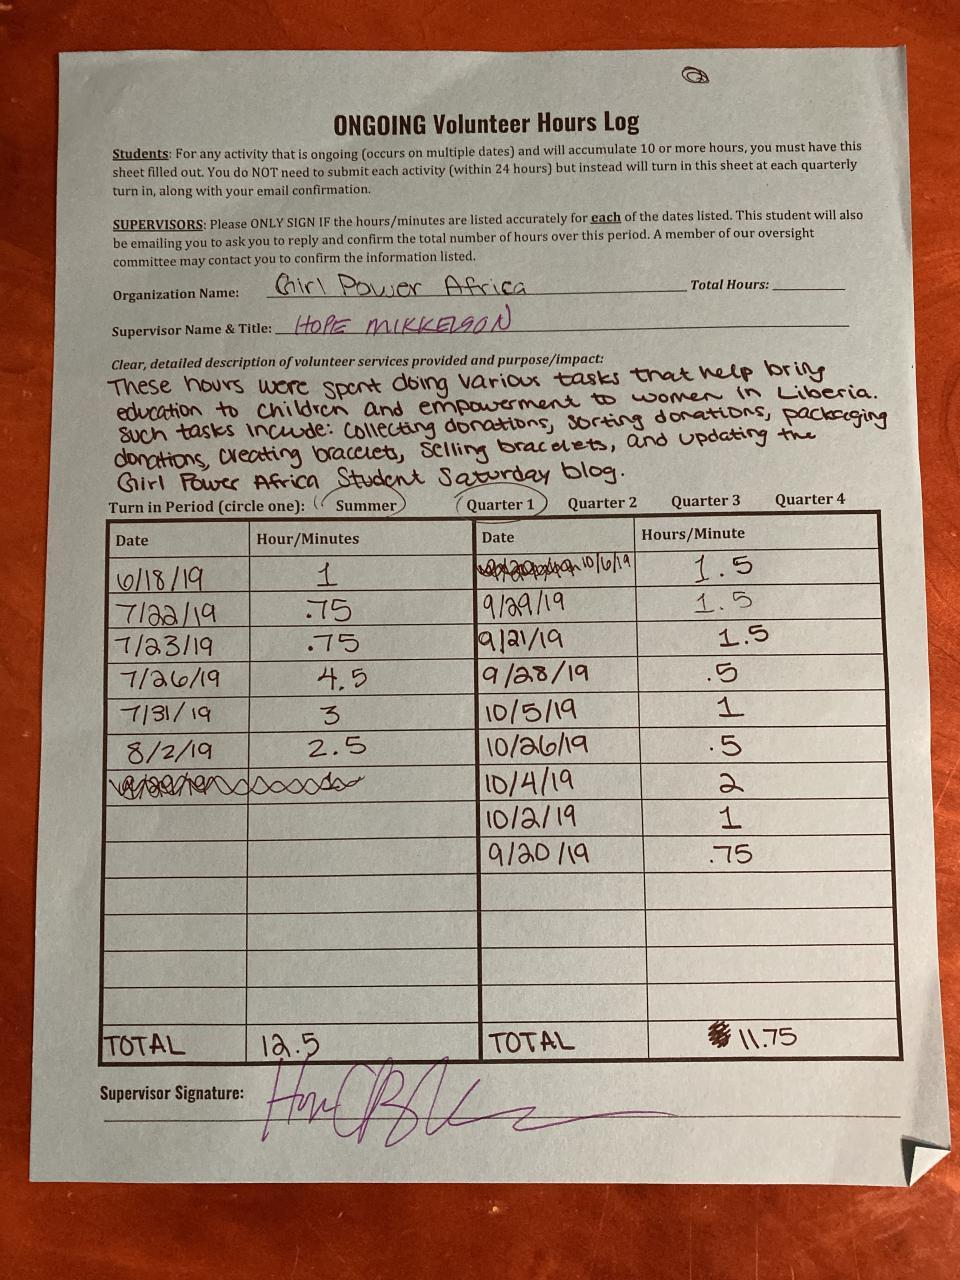 ONGOING Volunteer Hours Log
Students: For any activity that is ongoing (occurs on multiple dates) and will accumulate 10 or more hours, you must have this
sheet filled out. You do NOT need to submit each activity (within 24 hours) but instead will turn in this sheet at each quarterly
turn in, along with your email confirmation.
SUPERVISORS: Please ONLY SIGN IF the hours/minutes are listed accurately for each of the dates listed. This student will also
be emailing you to ask you to reply and confirm the total number of hours over this period. A member of our oversight
committee may contact you to confirm the information listed.
Organization Name: Girl Power Africa Total Hours:
Supervisor Name & Title: HOPE MIKKELSON
Clear, detailed description of volunteer services provided and purpose/impact:
These hours were spent doing various tasks that help bring
education to children and empowerment to women in Liberia.
Such tasks include: collecting donations, sorting donations, packaging
donations, creating bracelets, selling bracelets, and updating the
Girl Power Africa Student Saturday blog.
Turn in Period (circle one): Summer Quarter 1 Quarter 2 Quarter 3 Quarter 4
Date Hour/Minutes Date Hours/Minute
6/18/19 1 10/6/19 1.5
7/22/19 .75 9/29/19 1.5
7/23/19 .75 9/21/19 1.5
7/26/19 4.5 9/28/19 .5
7/31/19 3 10/5/19 1
8/2/19 2.5 10/26/19 .5
10/4/19 2
10/2/19 1
9/20/19 .75
TOTAL 12.5 TOTAL 11.75
Supervisor Signature: